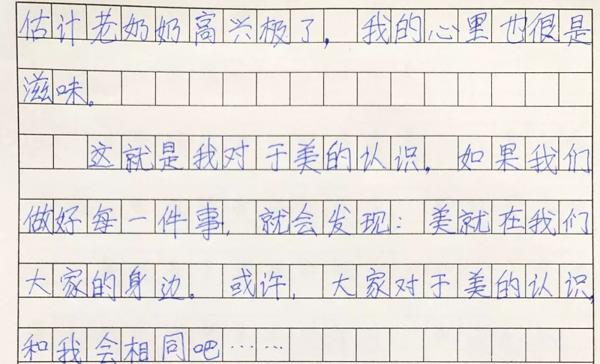 估计老奶奶高兴极了，我的心里也很是
滋味。
这就是我对于美的认识，如果我们
做好每一件事，就会发现：美就在我们
大家的身边。或许，大家对于美的认识，
和我会相同吧……